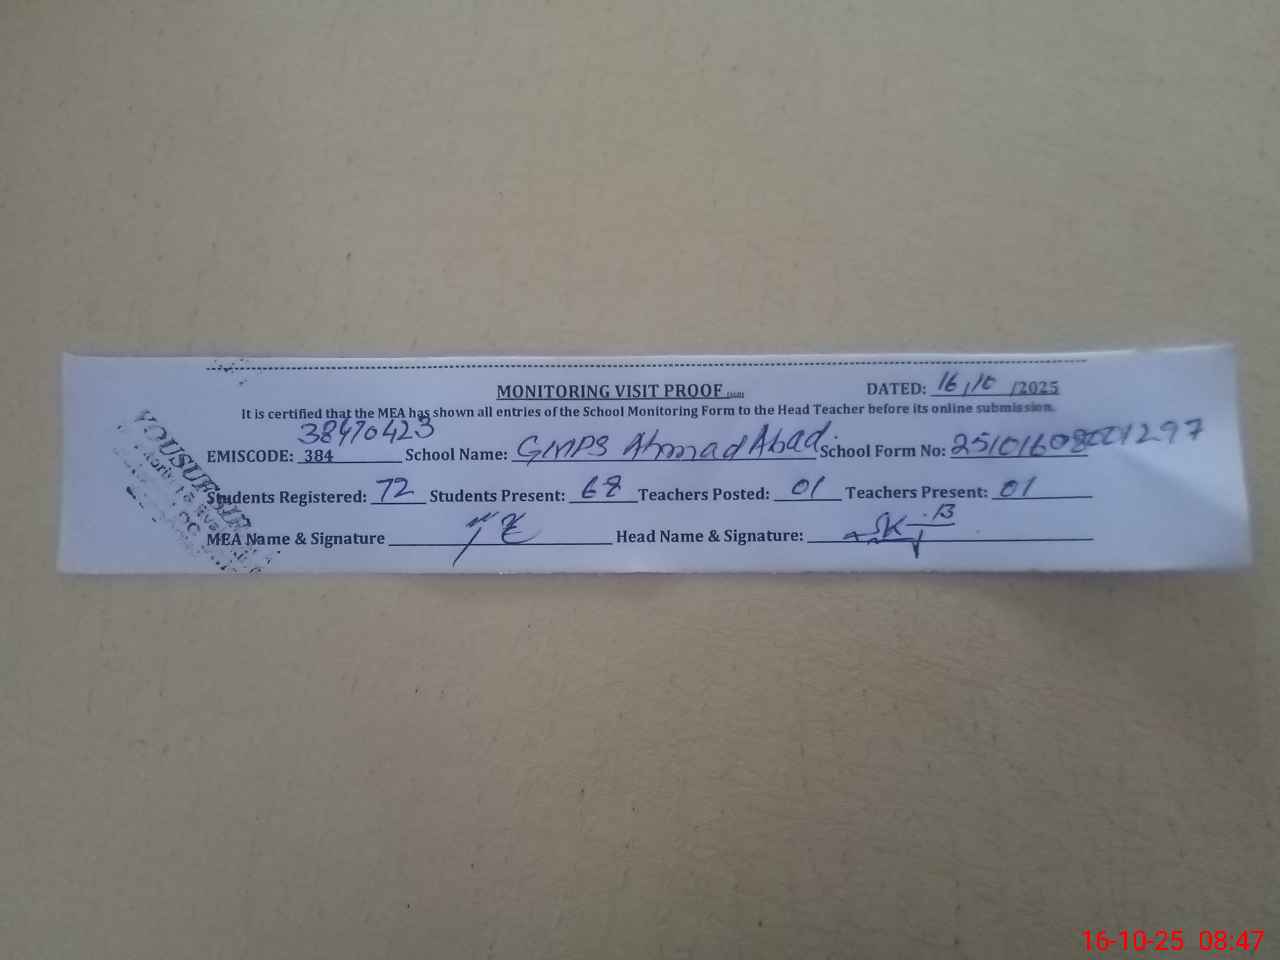 MONITORING VISIT PROOF DATED: 16/10/2025
It is certified that the MEA has shown all entries of the School Monitoring Form to the Head Teacher before its online submission.
38470423
EMISCODE: 384 School Name: GMPS Ahmad Abad. School Form No:
Students Registered: 72 Students Present: 68 Teachers Posted: 01 Teachers Present: 01
MEA Name & Signature Head Name & Signature:
YOUSUF
16-10-25 08:47